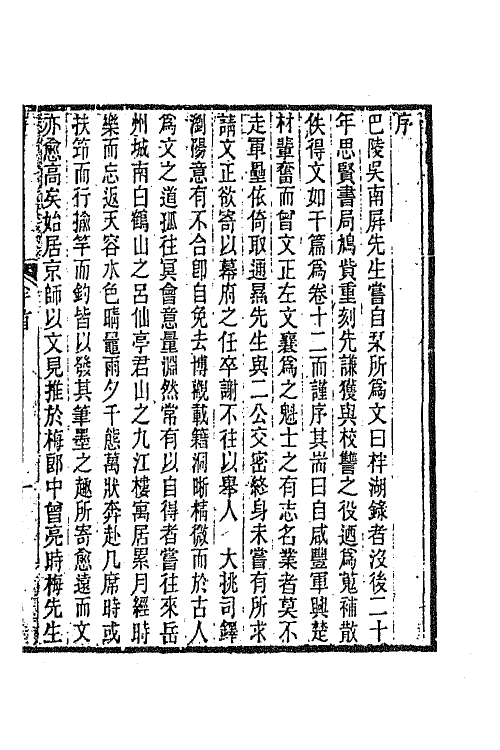 序
巴陵吳南屛先生嘗自栞所爲文曰柈湖錄者沒後二十
年思賢書局鳩貲重刻先謙獲與校讐之役迺爲蒐補散
佚得文如干篇爲卷十二而謹序其耑曰自咸豐軍興楚
材輩奮而曾文正左文襄爲之魁士之有志名業者莫不
走軍壘依倚取通顯先生與二公交密終身未嘗有所求
請文正欲寄以幕府之任卒謝不往以舉人　大挑司鐸
瀏陽意有不合卽自免去博觀載籍洞晰精微而於古人
爲文之道孤往冥會意量淵然常有以自得者嘗往來岳
州城南白鶴山之呂仙亭君山之九江樓寓居累月經時
樂而忘返天容水色晴曇雨夕千態萬狀奔赴几席時或
扶筇而行揄竿而釣皆以發其筆墨之趣所寄愈遠而文
亦愈高矣始居京師以文見推於梅郞中曾亮時梅先生